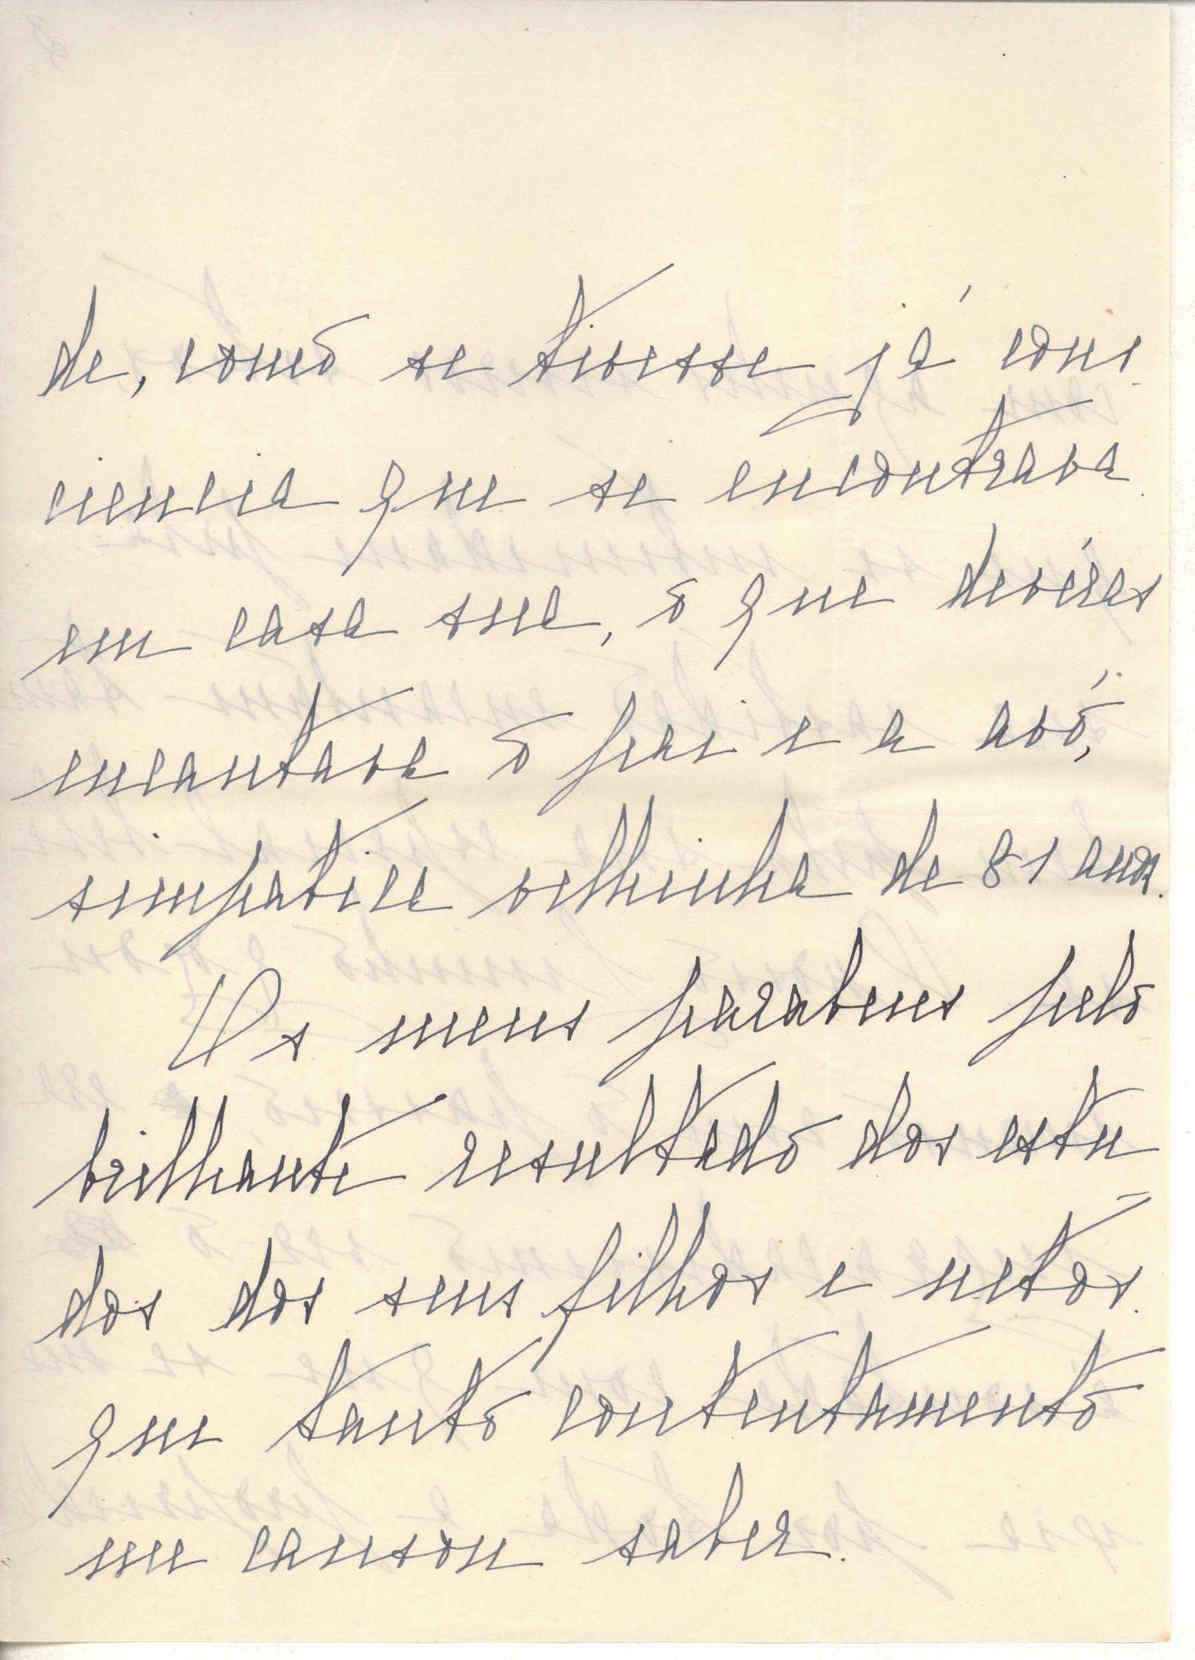 de, como se tivesse já cons
ciencia que se encontrava
em casa sua, o que devéras
encantava o pai e a avó,
simpatica velhinha de 81 anos.
Os meus parabens pelo
brilhante resultado dos estu
dos dos seus filhos e netos.
que tanto contentamento
me causou saber.